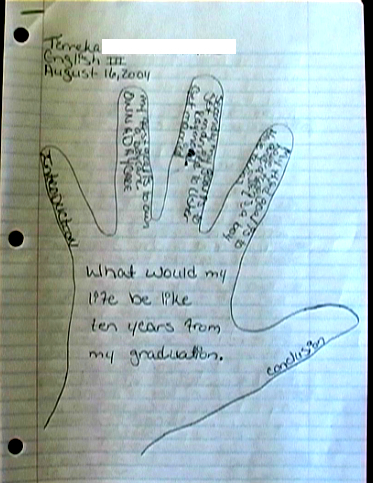 Terreka
English III
August 16, 2004
Introduction
my first goal is to own
Second goal is to
get married
My third goal is to
a boy
What would my
life be like
ten years from
my graduation.
conclusion